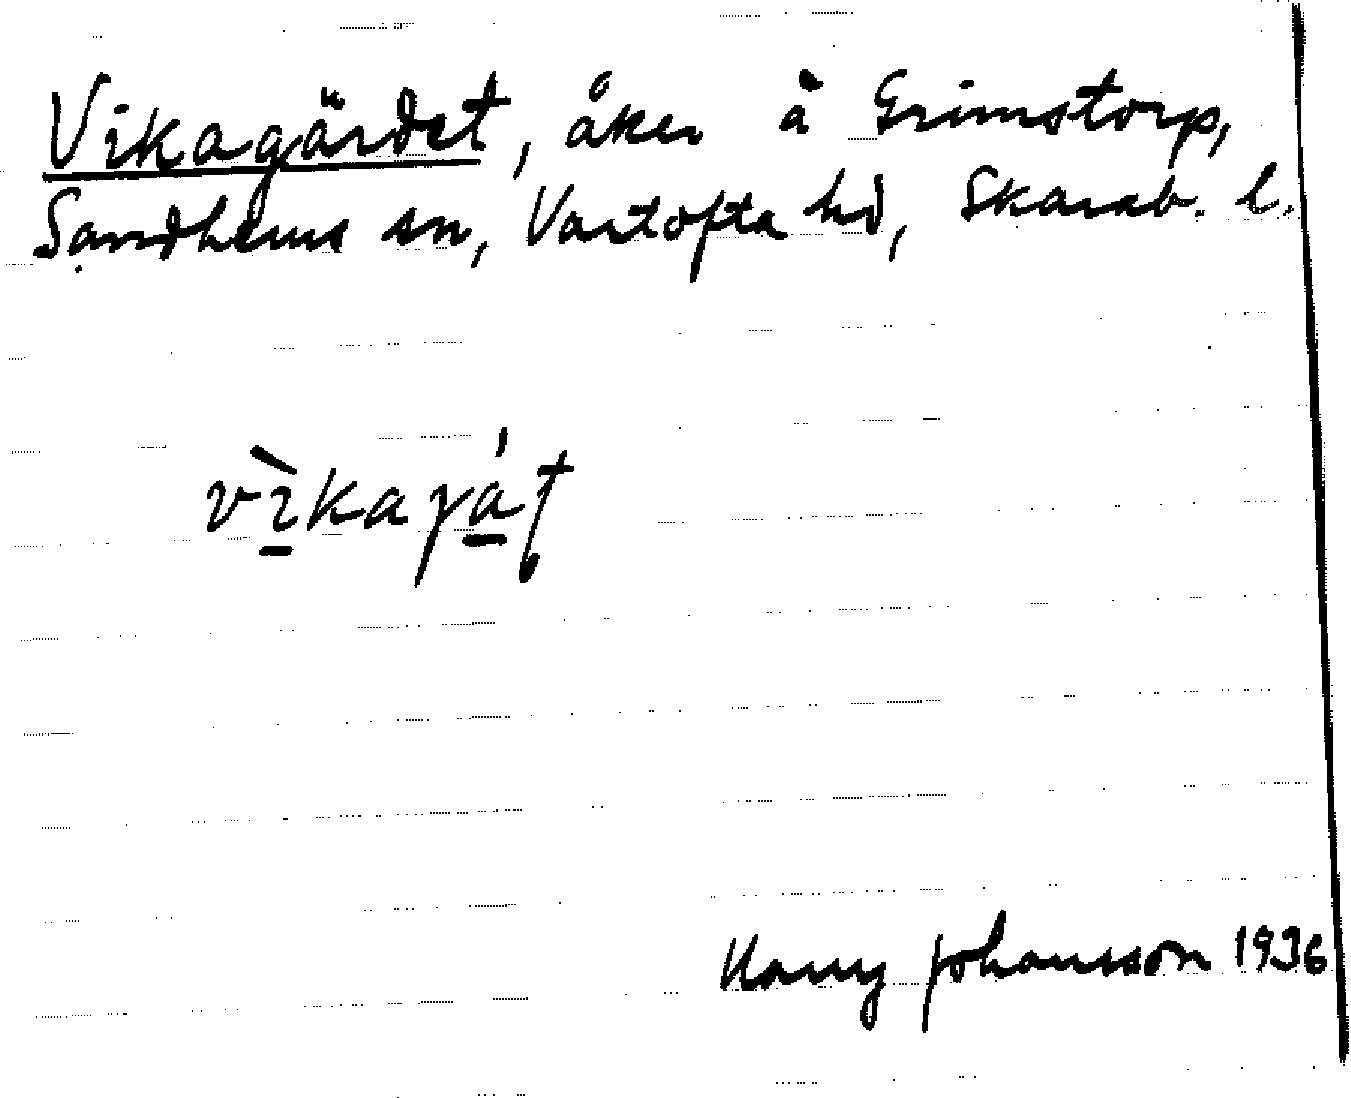 Vikagärdet, åker å Grimstorp,
Sandhems sn, Vartofta hd, Skarab. l.
vìkajáț
Harry Johansson 1936